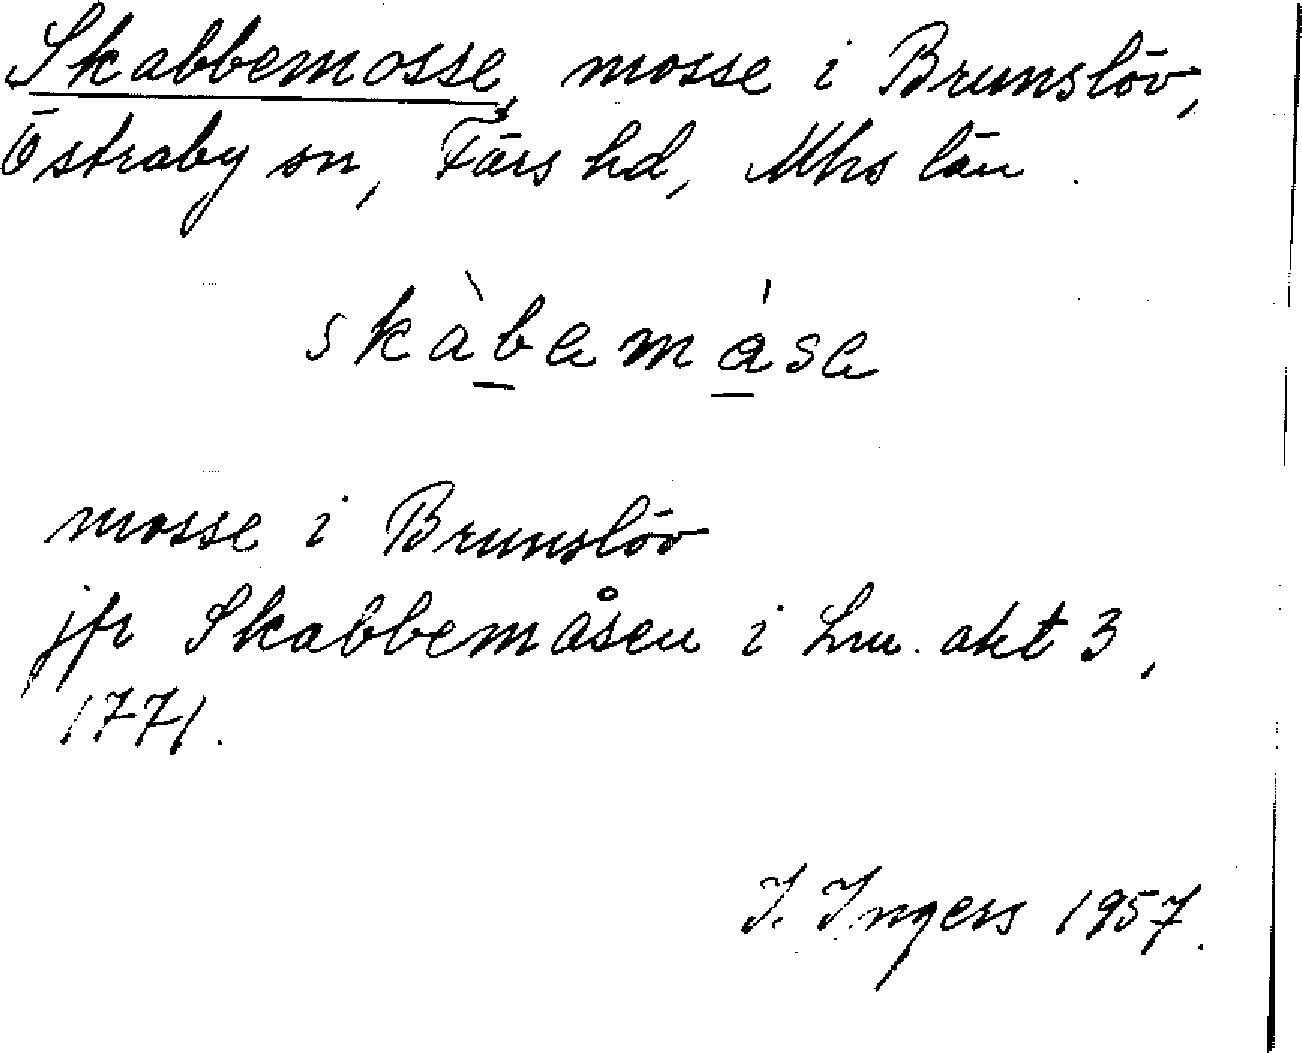 Skabbemosse, mosse i Brunslöv,
Östraby sn, Färs hd, Mhs län.
skàbemáse
mosse i Brunslöv
jfr Skabbemåsen i Lm. akt 3,
1771.
I. Ingers 1957.